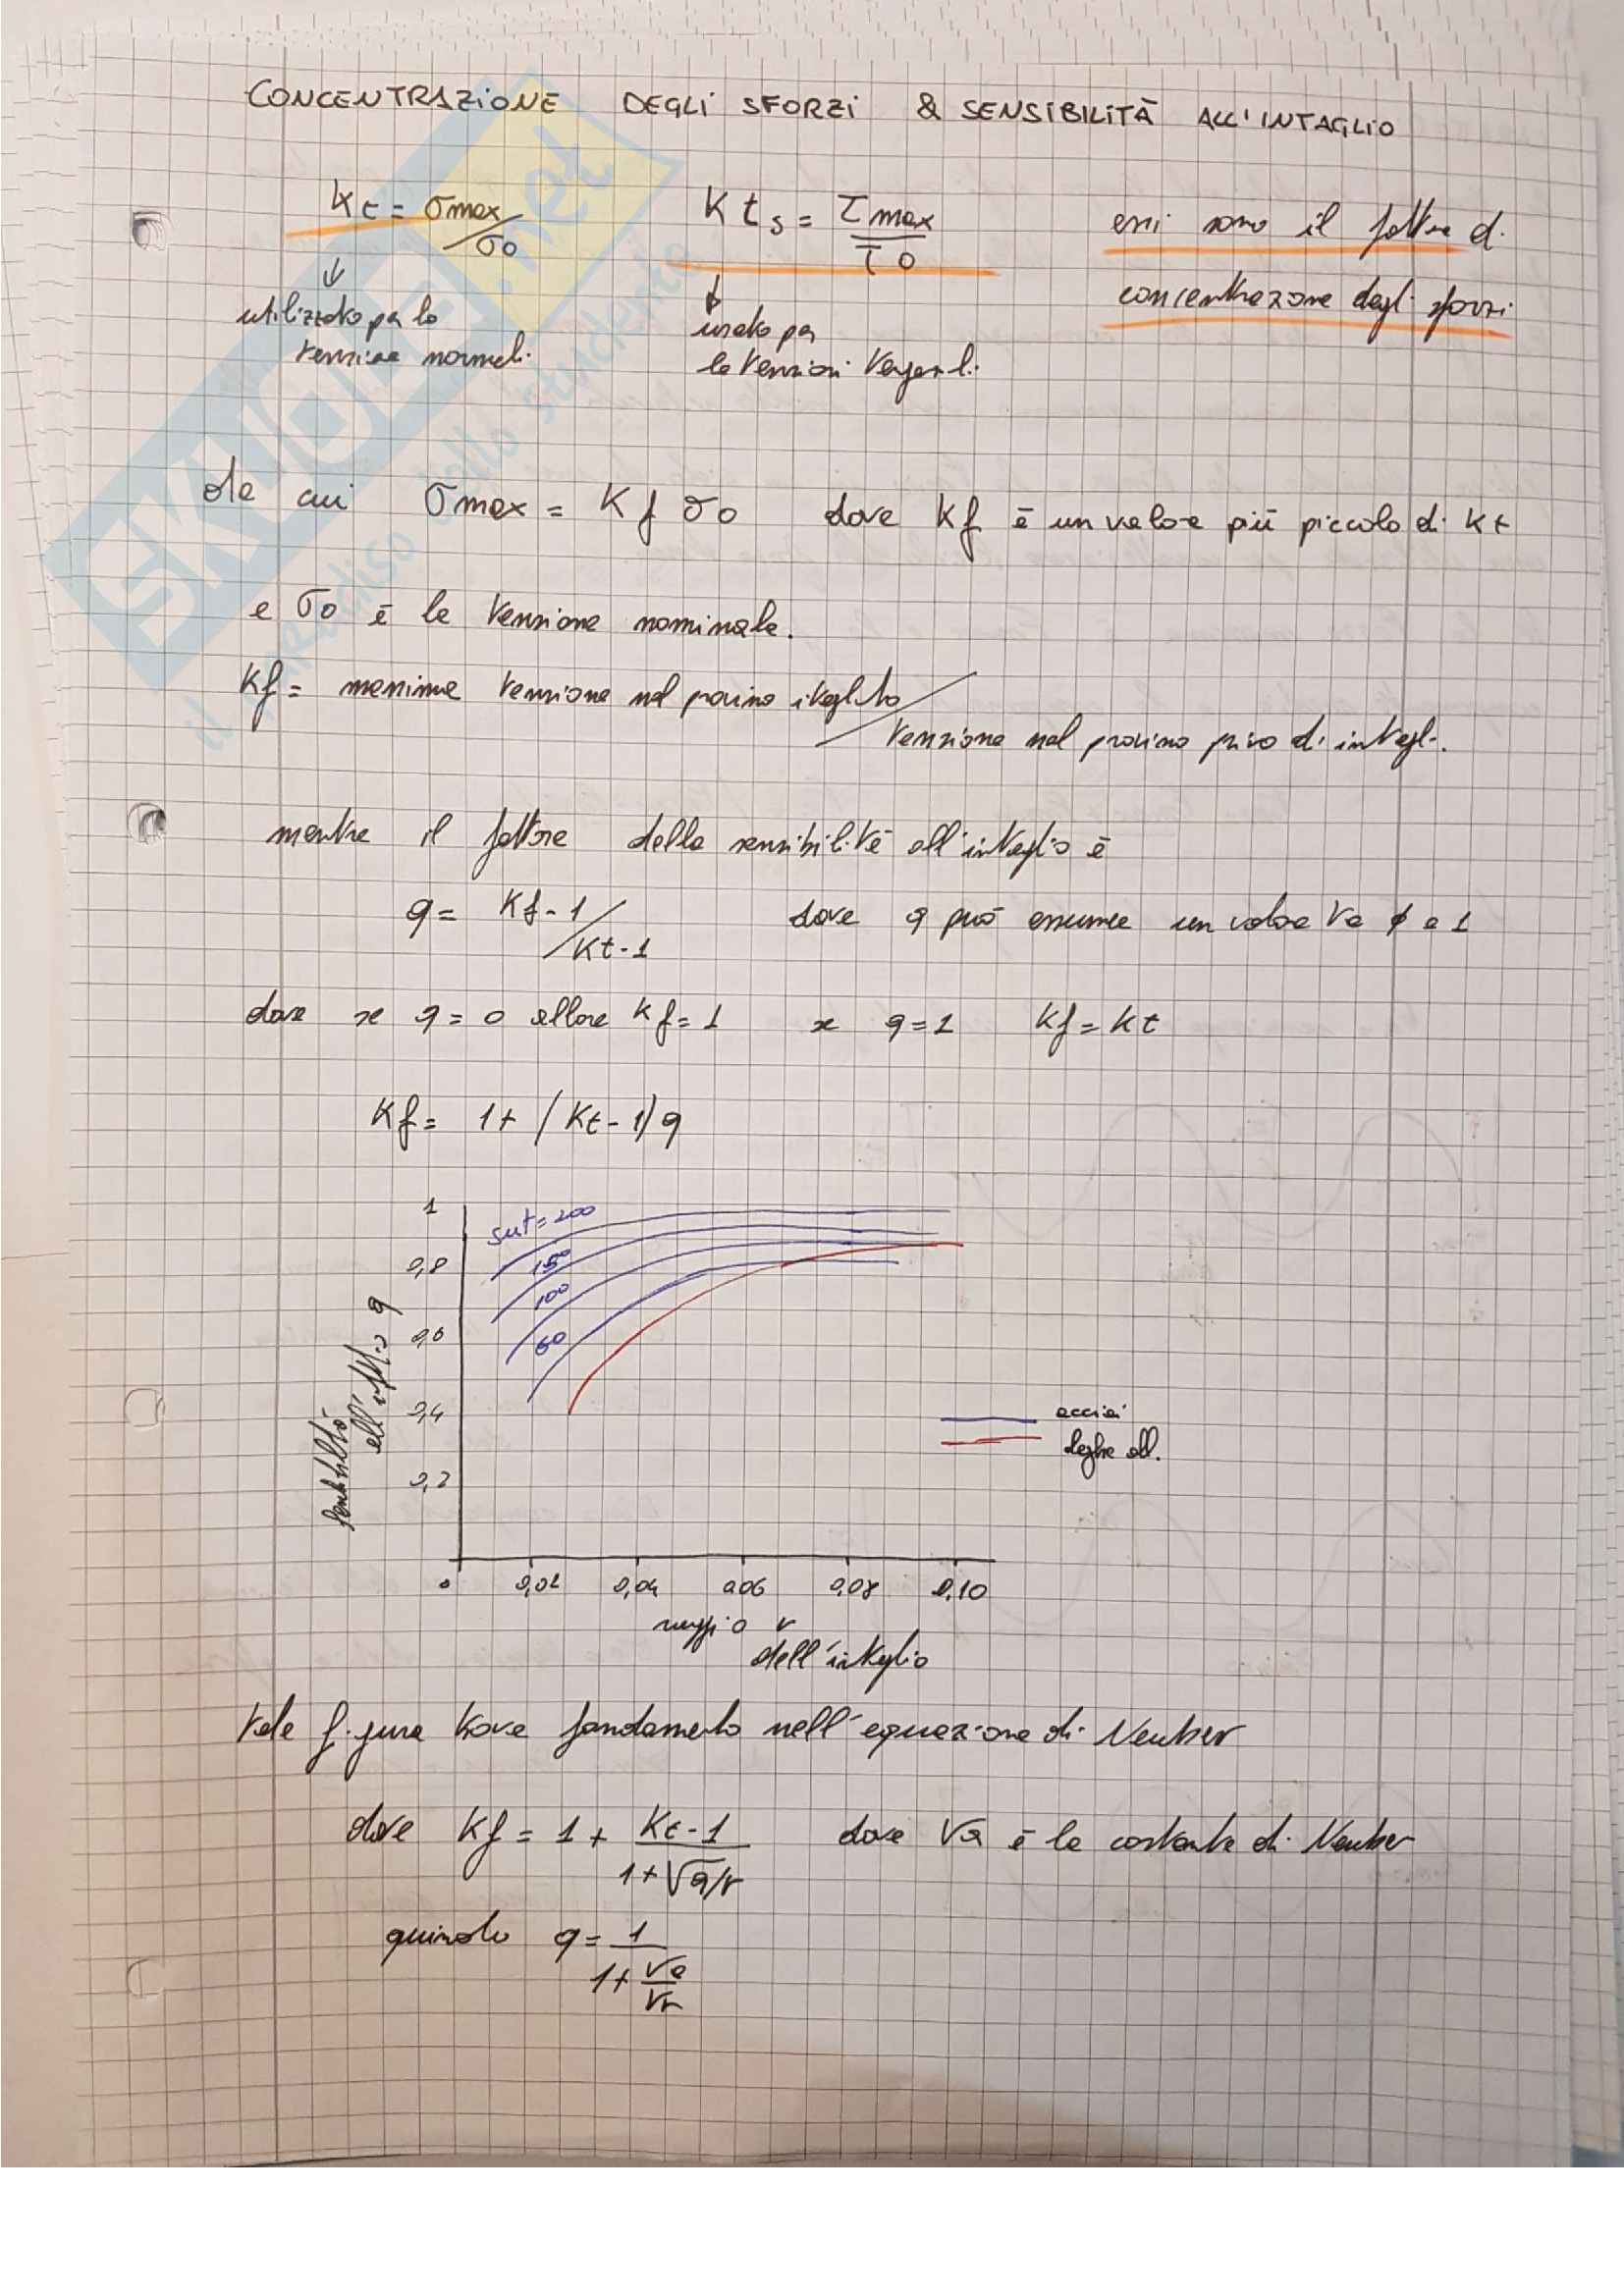 CONCENTRAZIONE DEGLI SFORZI & SENSIBILITÀ ALL'INTAGLIO
Kt = σmax/σo
Kts = τmax/τo
essi sono il fattore di
concentrazione degli sforzi
↓
utilizzato per le
tensione normali
↓
usato per
le tensioni tangenziali
da cui σmax = Kf σo dove Kf è un valore più piccolo di Kt
e σo è la tensione nominale.
Kf = massima tensione nel provino intagliato /
tensione nel provino privo di intagli.
mentre il fattore della sensibilità all'intaglio è
q = Kf-1/Kt-1 dove q può assumere un valore tra 0 e 1
dove se q = 0 allora Kf = 1 se q = 1 Kf = Kt
Kf = 1 + (Kt - 1) q
1
0,8
0,6
0,4
0,2
sut = 200
150
100
60
sensibilità
all'intaglio q
acciai
leghe all.
0 0,02 0,04 0,06 0,08 0,10
raggio r
dell'intaglio
tale figura trova fondamento nell'equazione di Neuber
dove Kf = 1 + Kt-1/1+√a/r dove √a è la costante di Neuber
quindi q = 1/1+√a/√r
SKUOLA.net
il paradiso dello studente